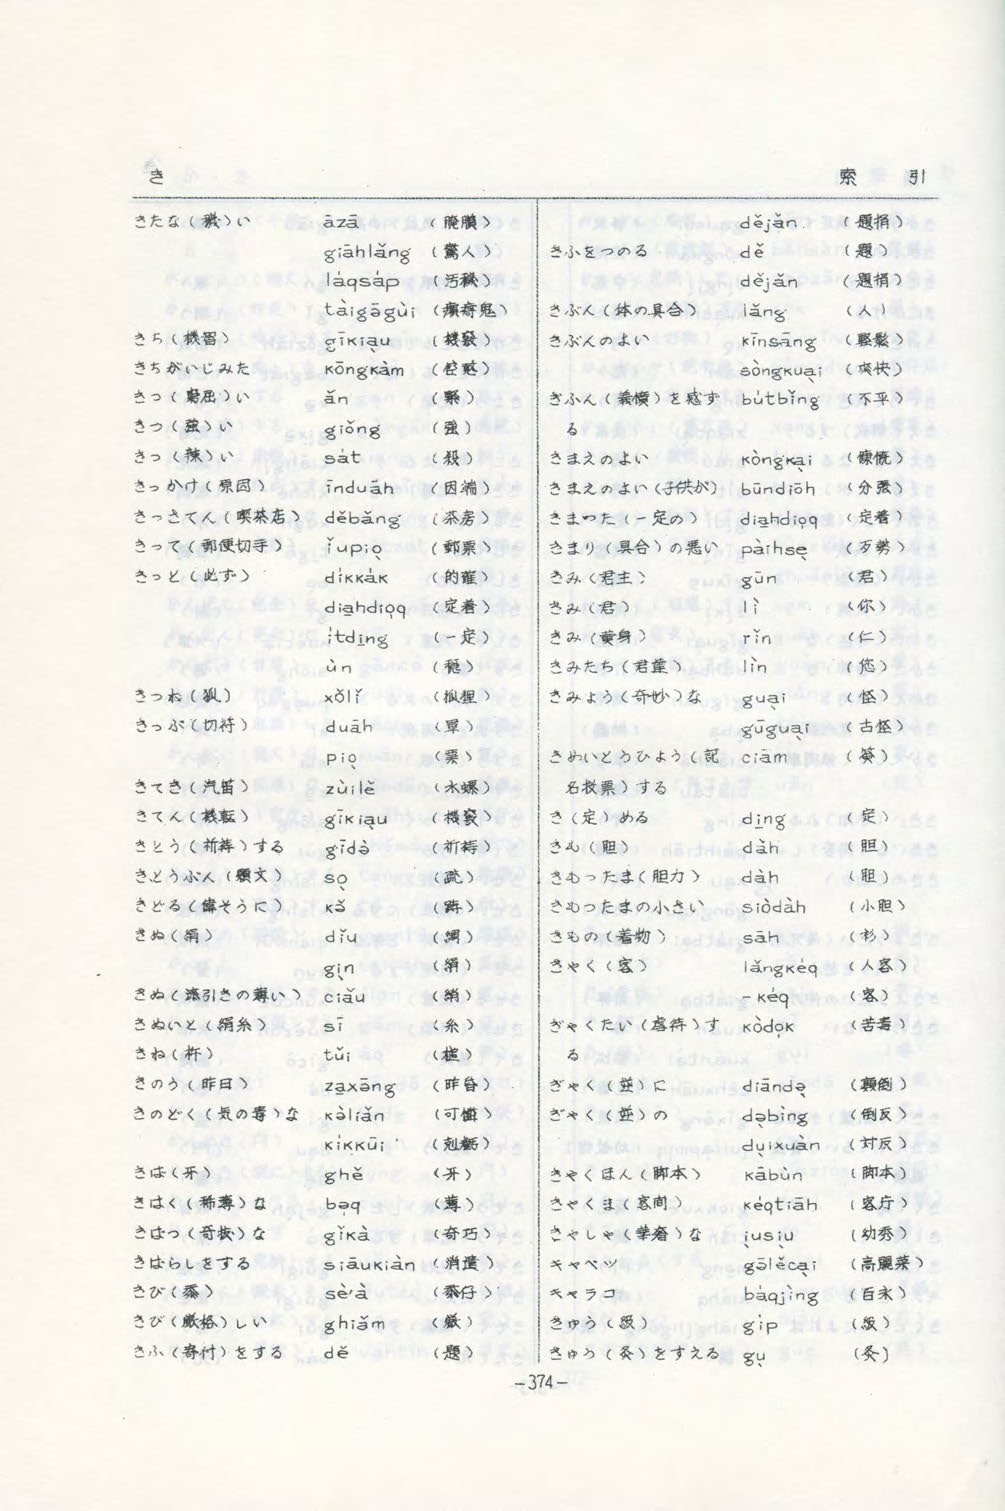 き 索 引
きたな(穢)い āzā (腌臢)
giāhlǎng (驚人)
láqsáp (汚穢)
tàigəgùi (癩疴鬼)
きち(機智) gīkiạu (機竅)
きちがいじみた kōngkàm (倥)
きつ(窮屈)い ǎn
きつ(強)い giǒng (強)
きつ(辣)い sát (殺)
きっかけ(原因) īnduāh (因端)
きっさてん(喫茶店) děbǎng (茶房)
きって(郵便切手) ǐupiọ (郵票)
きっと(必ず) díkkák (的確)
dia̱hdiọq (定着)
ítdi̱ng (一定)
ùn (穏)
きつね(狐) xǒlǐ (狐狸)
きっぷ(切符) duāh (單)
piọ (票)
きてき(汽笛) zùilě (水螺)
きてん(機転) gīkiạu (機竅)
きとう(祈祷)する gīdə̀ (祈祷)
きとうぶん(願文) sọ (疏)
きどる(偉そうに) kə̌
きぬ(絹) dǐu (綢)
gịn (絹)
きぬ(漉引きの薄い) ciǎu (綃)
きぬいと(絹糸) sī (糸)
きね(杵) tǔi (槌)
きのう(昨日) za̱xəng (昨昏)
きのどく(気の毒)な kə̀liǎn (可憐)
kíkkūi (剋虧)
きば(牙) ghě (牙)
きはく(稀薄)な bəq (薄)
きばつ(奇抜)な gǐkà (奇巧)
きばらしをする siāukiàn (消遣)
きび(黍) sè'à (黍仔)
きび(厳格)しい ghiǎm (厳)
きふ(寄付)をする dě (題)
děján (題捐)
きふをつのる dě (題)
děján (題捐)
きぶん(体の具合) lǎng (人)
きぶんのよい kīnsāng (軽鬆)
sòngkuại (爽快)
ぎふん(義憤)を感ず bútbǐng (不平)
る
きまえのよい kòngkại (慷慨)
きまえのよい(子供が) būndiōh (分張)
きまった(一定の) dia̱hdiọq (定着)
きまり(具合)の悪い pàihsẹ (歹勢)
きみ(君主) gūn (君)
きみ(君) lì (你)
きみ(黄身) rǐn (仁)
きみたち(君達) lìn (您)
きみょう(奇妙)な guại (怪)
gūguại (古怪)
きめいとうひょう(記 ciām (簽)
名投票)する
き(定)める di̱ng (定)
きも(胆) dàh (胆)
きもったま(胆力) dàh (胆)
きもったまの小さい siòdàh (小胆)
きもの(着物) sāh (衫)
きゃく(客) lǎngkéq (人客)
-kéq (客)
ぎゃくたい(虐待)す kòdọk (苦毒)
る
ぎゃく(逆)に diāndə̣ (顛倒)
ぎゃく(逆)の də̣bìng (倒反)
dụixuàn (対反)
きゃくほん(脚本) kābùn (脚本)
きゃくま(客間) kéqtiāh (客庁)
きゃしゃ(華奢)な ịusịu (幼秀)
キャベツ gəlěcại (高麗菜)
キャラコ báqjìng (百永)
きゅう(級) gíp (級)
きゅう(灸)をすえる gụ (灸)
-374-